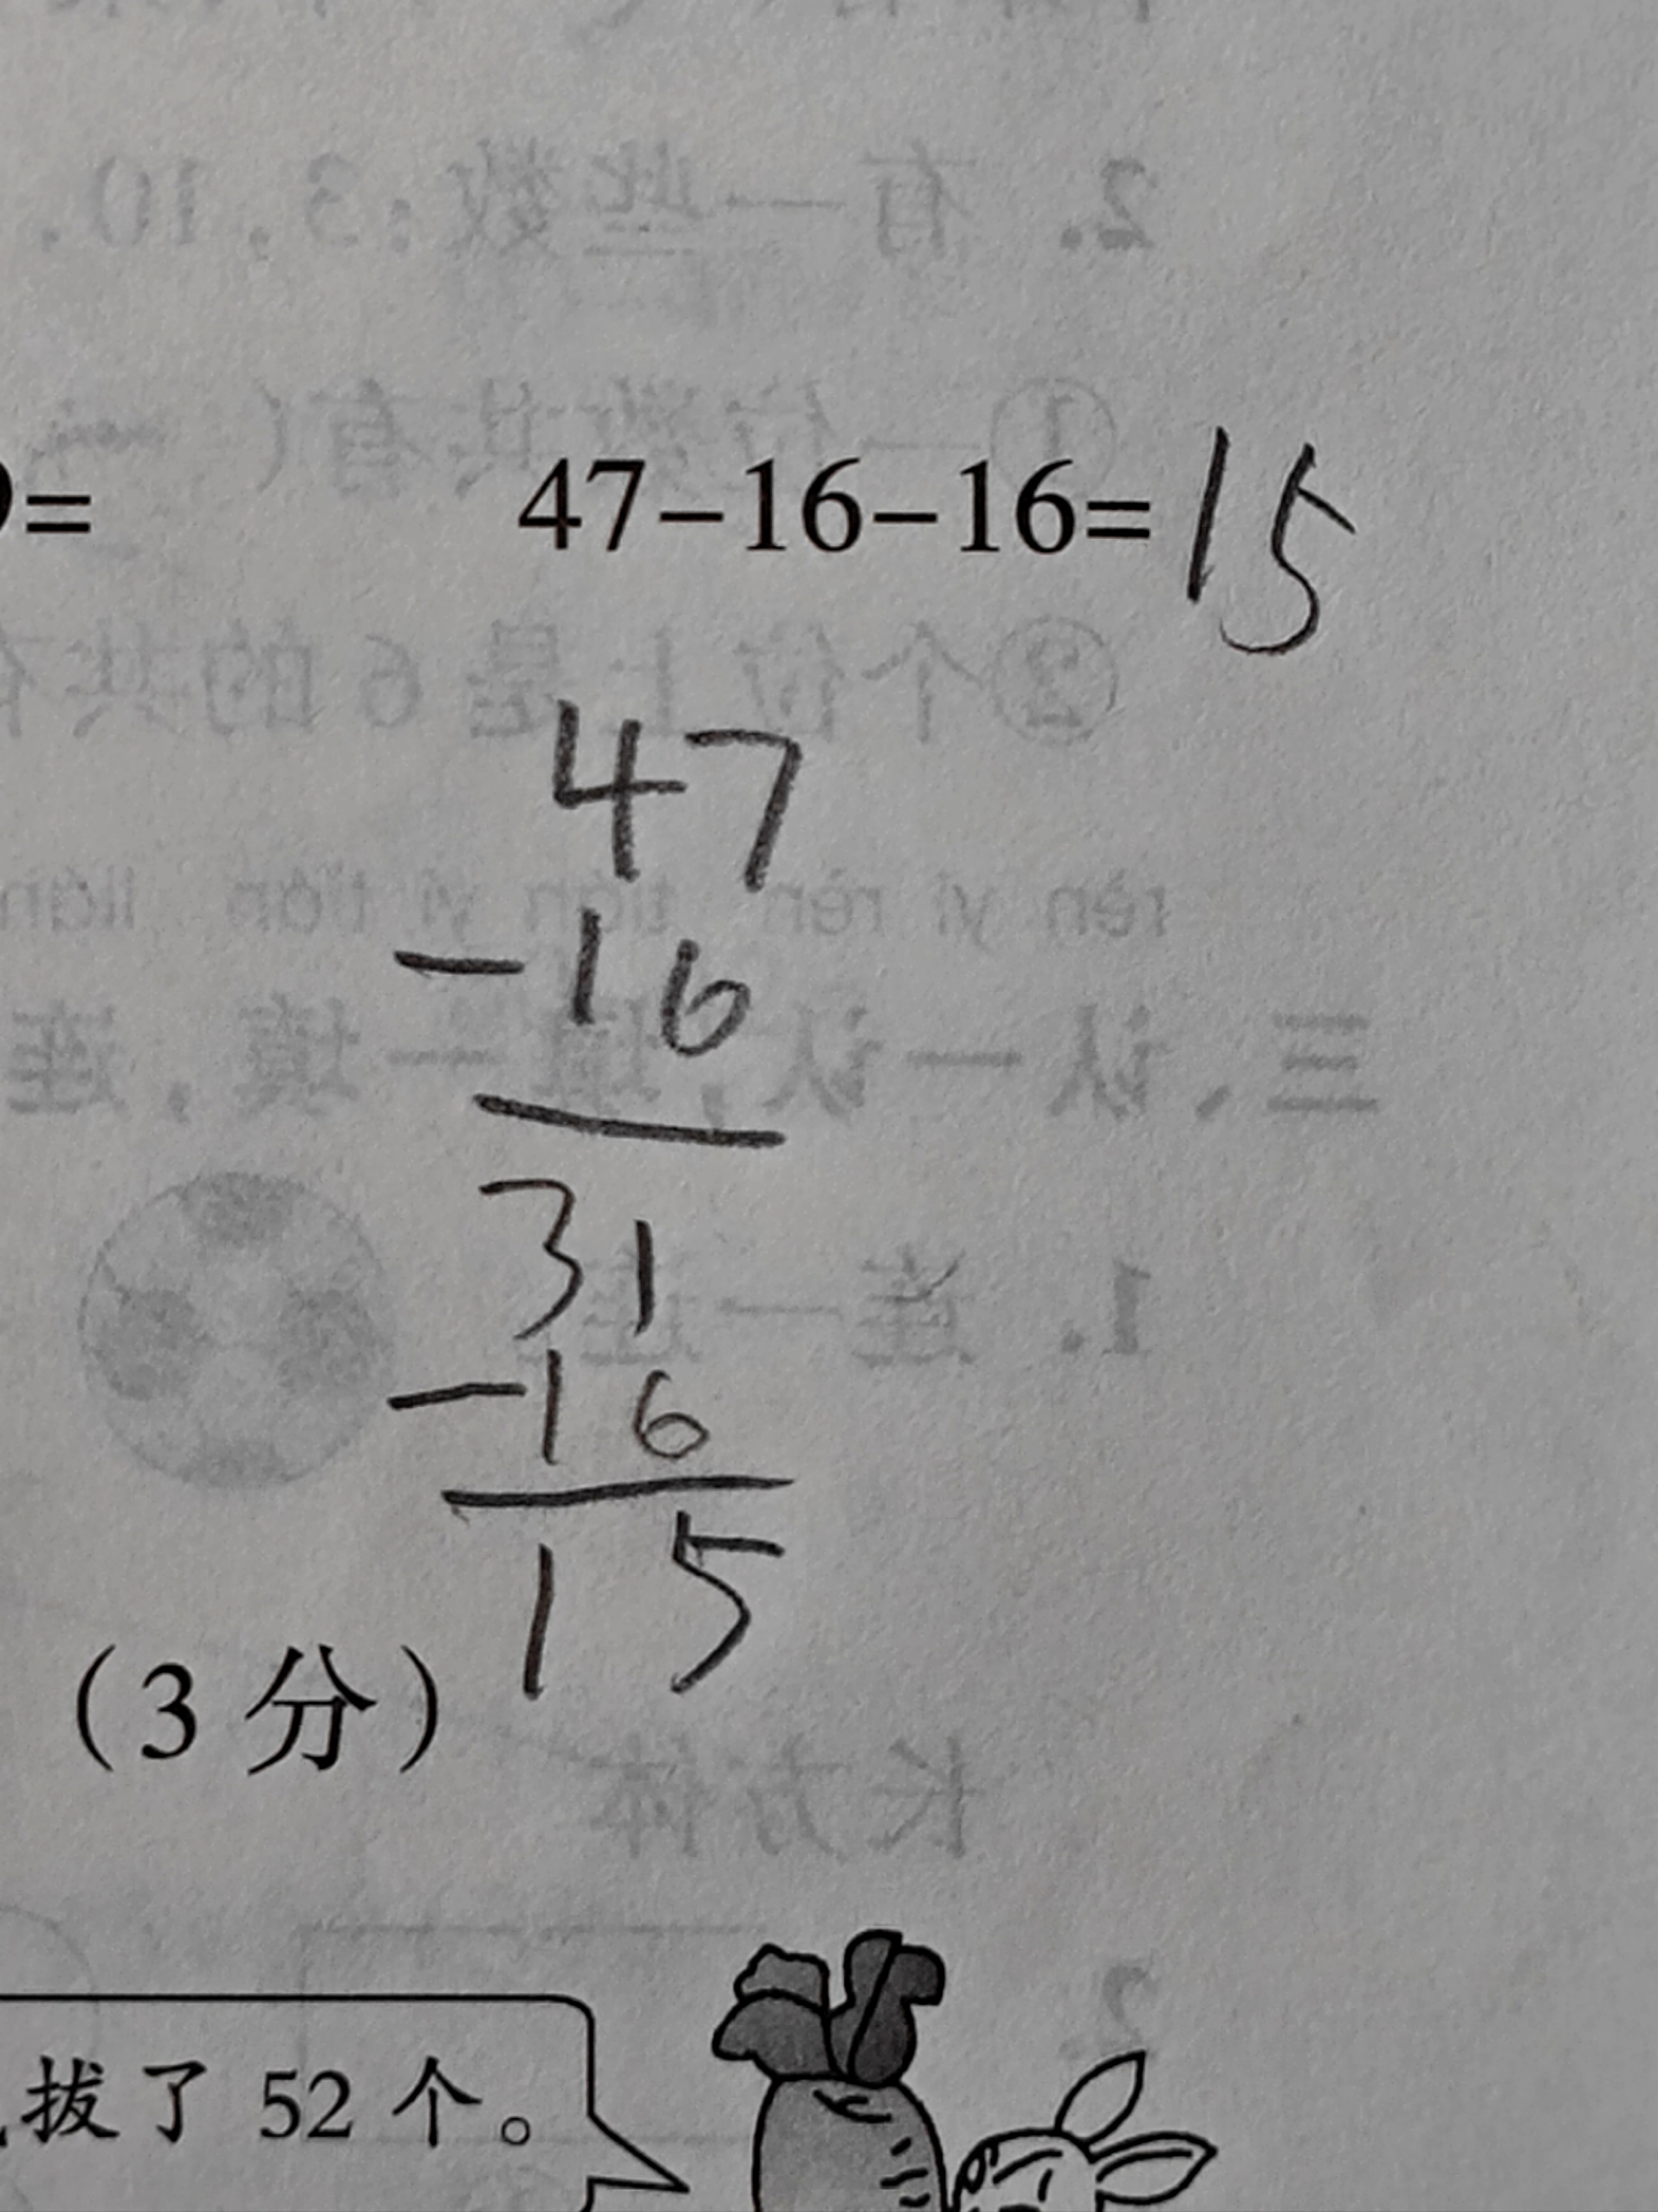 =
47-16-16=15
47
-16
31
-16
15
(3分)
拔了 52 个。